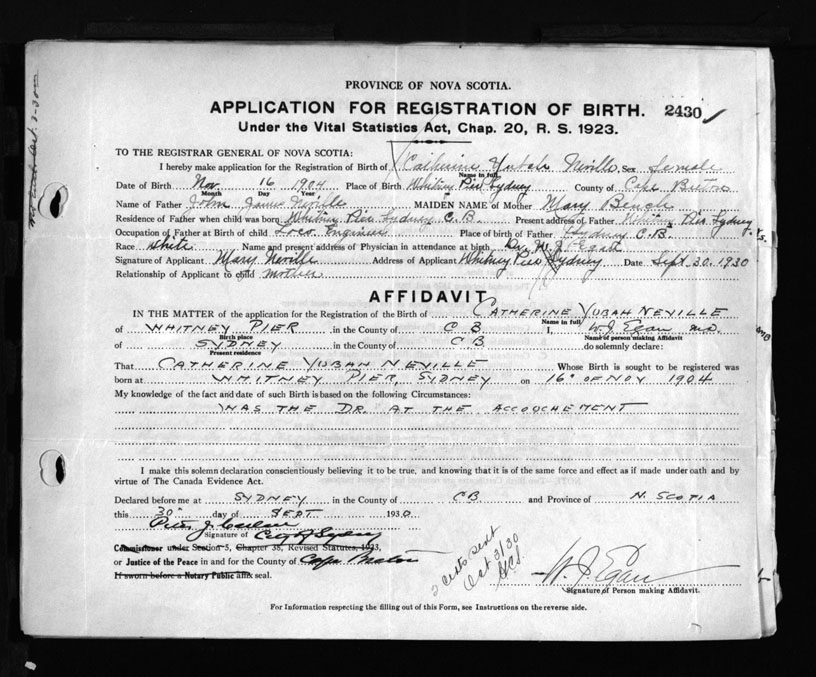 PROVINCE OF NOVA SCOTIA.
APPLICATION FOR REGISTRATION OF BIRTH. 2430
Under the Vital Statistics Act, Chap. 20, R. S. 1923.
TO THE REGISTRAR GENERAL OF NOVA SCOTIA:
I hereby make application for the Registration of Birth of Catherine Neville Sex Female
Name in full
Date of Birth Nov 16 1904 Place of Birth Whitney Pier Sydney County of Cape Breton
Month Day Year
Name of Father John James Neville MAIDEN NAME of Mother Mary
Residence of Father when child was born Whitney Pier Sydney C.B. Present address of Father Whitney Pier Sydney
Occupation of Father at Birth of child Loco. Engineer Place of birth of Father Sydney C.B. N.S.
Race White Name and present address of Physician in attendance at birth Dr. W. J. Egan
Signature of Applicant Mary Neville Address of Applicant Whitney Pier Sydney Date Sept. 30. 1930
Relationship of Applicant to child mother
AFFIDAVIT
IN THE MATTER of the application for the Registration of the Birth of CATHERINE YUBAH NEVILLE
Name in full
of WHITNEY PIER in the County of C B I, W. J. Egan MD.
Birth place Name of person making Affidavit
of SYDNEY in the County of C B do solemnly declare:
Present residence
That CATHERINE YUBAH NEVILLE Whose Birth is sought to be registered was
born at WHITNEY PIER, SYDNEY on 16° OF NOV 1904
My knowledge of the fact and date of such Birth is based on the following Circumstances:
WAS THE DR. AT THE ACCOUCHEMENT
I make this solemn declaration conscientiously believing it to be true, and knowing that it is of the same force and effect as if made under oath and by
virtue of The Canada Evidence Act.
Declared before me at SYDNEY in the County of CB and Province of N. SCOTIA
this 30° day of SEPT 1930
Signature of City of Sydney
Commissioner under Section 5, Chapter 38, Revised Statutes, 1923,
or Justice of the Peace in and for the County of Cape Breton
If sworn before a Notary Public affix seal.
2 certs sent
Oct 3/30
W. J. Egan
Signature of Person making Affidavit.
For Information respecting the filling out of this Form, see Instructions on the reverse side.